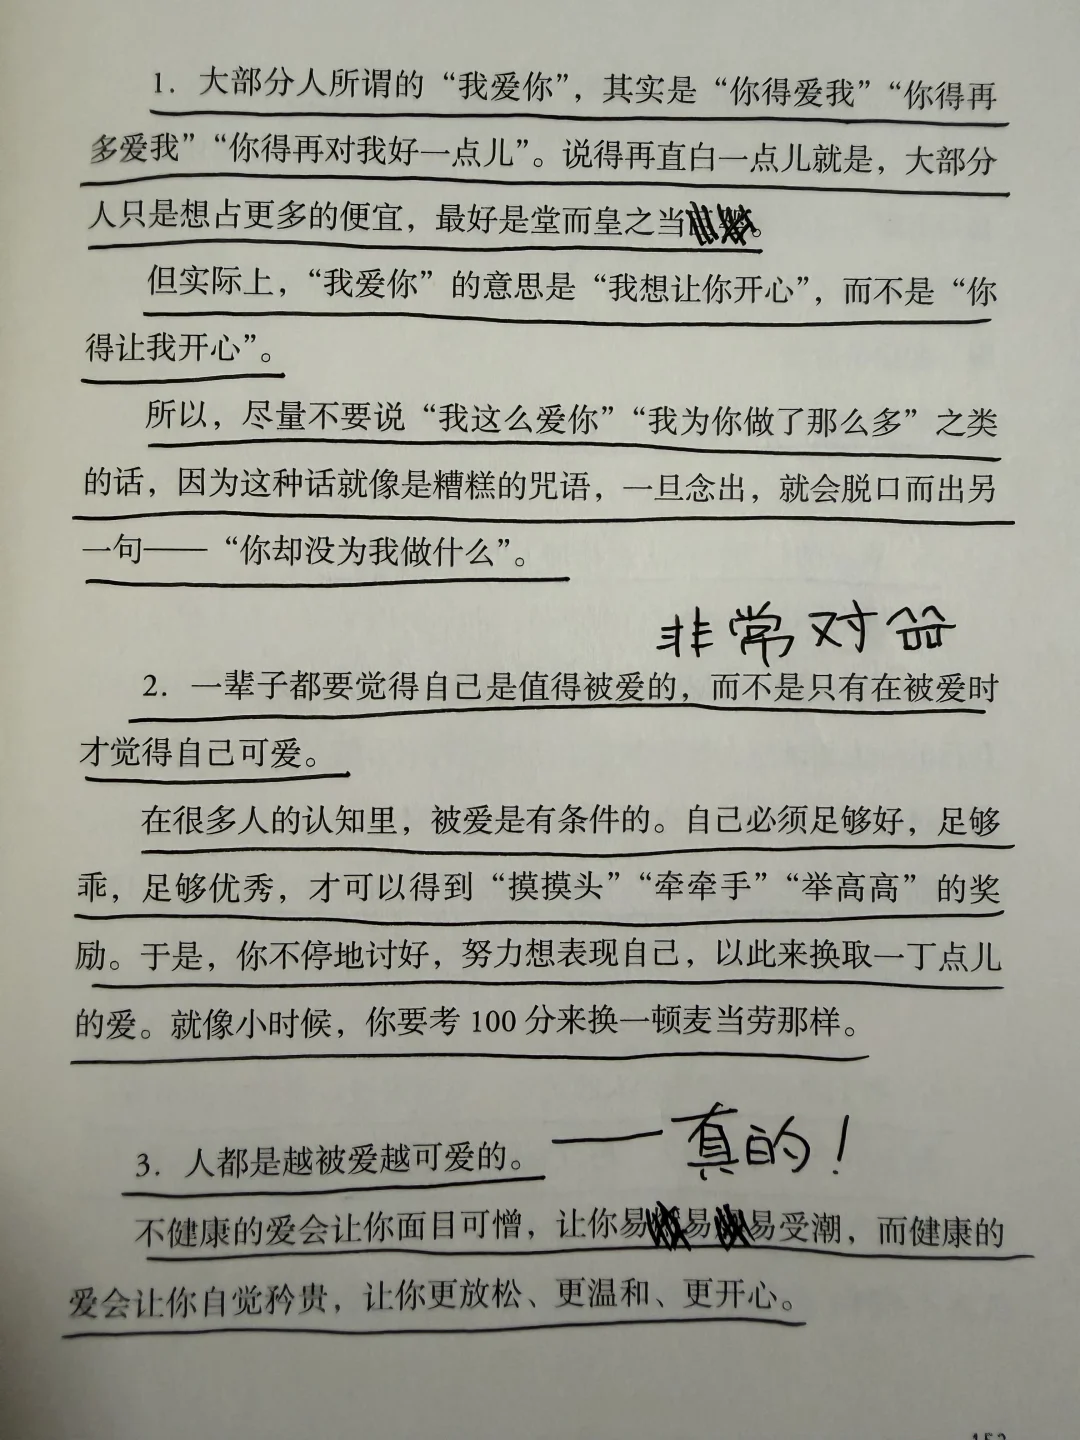 1. 大部分人所谓的“我爱你”，其实是“你得爱我”“你得再
多爱我”“你得再对我好一点儿”。说得再直白一点儿就是，大部分
人只是想占更多的便宜，最好是堂而皇之当。
但实际上，“我爱你”的意思是“我想让你开心”，而不是“你
得让我开心”。
所以，尽量不要说“我这么爱你”“我为你做了那么多”之类
的话，因为这种话就像是糟糕的咒语，一旦念出，就会脱口而出另
一句——“你却没为我做什么”。
非常对
2. 一辈子都要觉得自己是值得被爱的，而不是只有在被爱时
才觉得自己可爱。
在很多人的认知里，被爱是有条件的。自己必须足够好，足够
乖，足够优秀，才可以得到“摸摸头”“牵牵手”“举高高”的奖
励。于是，你不停地讨好，努力想表现自己，以此来换取一丁点儿
的爱。就像小时候，你要考 100 分来换一顿麦当劳那样。
3. 人都是越被爱越可爱的。——真的！
不健康的爱会让你面目可憎，让你易易易受潮，而健康的
爱会让你自觉矜贵，让你更放松、更温和、更开心。